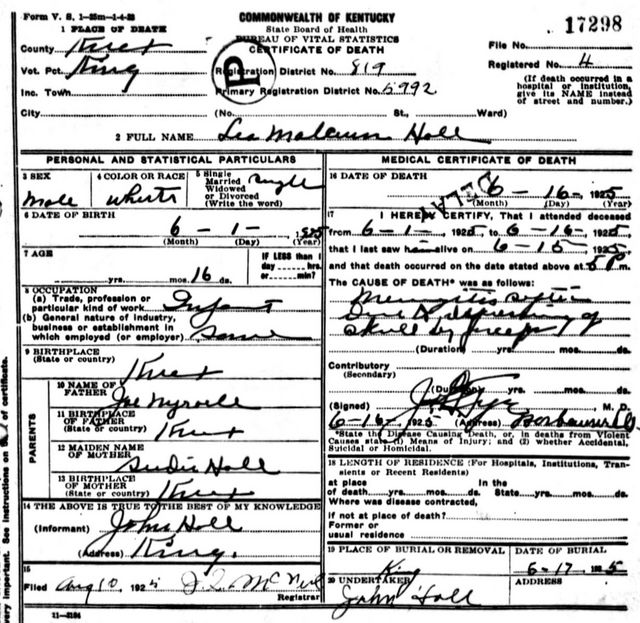 Form V. S. 1-35m-1-4-25
COMMONWEALTH OF KENTUCKY
State Board of Health
BUREAU OF VITAL STATISTICS
CERTIFICATE OF DEATH
17298
1 PLACE OF DEATH
County Knox
File No.
Vot. Pct. King
Registration District No. 819
Registered No. 4
Inc. Town
Primary Registration District No. 5992
(If death occurred in a hospital or institution, give its NAME instead of street and number.)
City (No. St., Ward)
2 FULL NAME Hall
PERSONAL AND STATISTICAL PARTICULARS
3 SEX
Male
4 COLOR OR RACE
White
5 Single
Married
Widowed
or Divorced
(Write the word)
Single
6 DATE OF BIRTH
6 - 1 - 1925
(Month) (Day) (Year)
7 AGE
yrs. mos. 16 ds.
IF LESS than 1
day hrs.
or min?
8 OCCUPATION
(a) Trade, profession or
particular kind of work Infant
(b) General nature of industry,
business or establishment in
which employed (or employer) Same
9 BIRTHPLACE
(State or country) Knox
PARENTS
10 NAME OF
FATHER
Joe
11 BIRTHPLACE
OF FATHER
(State or country) Knox
12 MAIDEN NAME
OF MOTHER
Hall
13 BIRTHPLACE
OF MOTHER
(State or country) Knox
14 THE ABOVE IS TRUE TO THE BEST OF MY KNOWLEDGE
(Informant) John Hall
(Address) King.
15
Filed Aug 10 1925
Registrar
11-3184
MEDICAL CERTIFICATE OF DEATH
16 DATE OF DEATH
6 - 16 - 1925
(Month) (Day) (Year)
17 I HEREBY CERTIFY, That I attended deceased
from 6-1- 1925 to 6-16- 1925
that I last saw h alive on 6-15 1925,
and that death occurred on the date stated above at 5 P m.
The CAUSE OF DEATH* was as follows:
Meningitis
Due to of
skull by forceps
(Duration) yrs. mos. ds.
Contributory
(Secondary)
(Duration) yrs. mos. ds.
(Signed) M. D.
6-16- 1925 (Address)
*State the Disease Causing Death, or, in deaths from Violent
Causes state (1) Means of Injury; and (2) whether Accidental,
Suicidal or Homicidal.
18 LENGTH OF RESIDENCE (For Hospitals, Institutions, Tran-
sients or Recent Residents)
at place In the
of death yrs. mos. ds. State yrs. mos. ds.
Where was disease contracted,
if not at place of death?
Former or
usual residence
19 PLACE OF BURIAL OR REMOVAL
King
DATE OF BURIAL
6-17 1925
20 UNDERTAKER
John Hall
ADDRESS
very important. See instructions on of certificate.